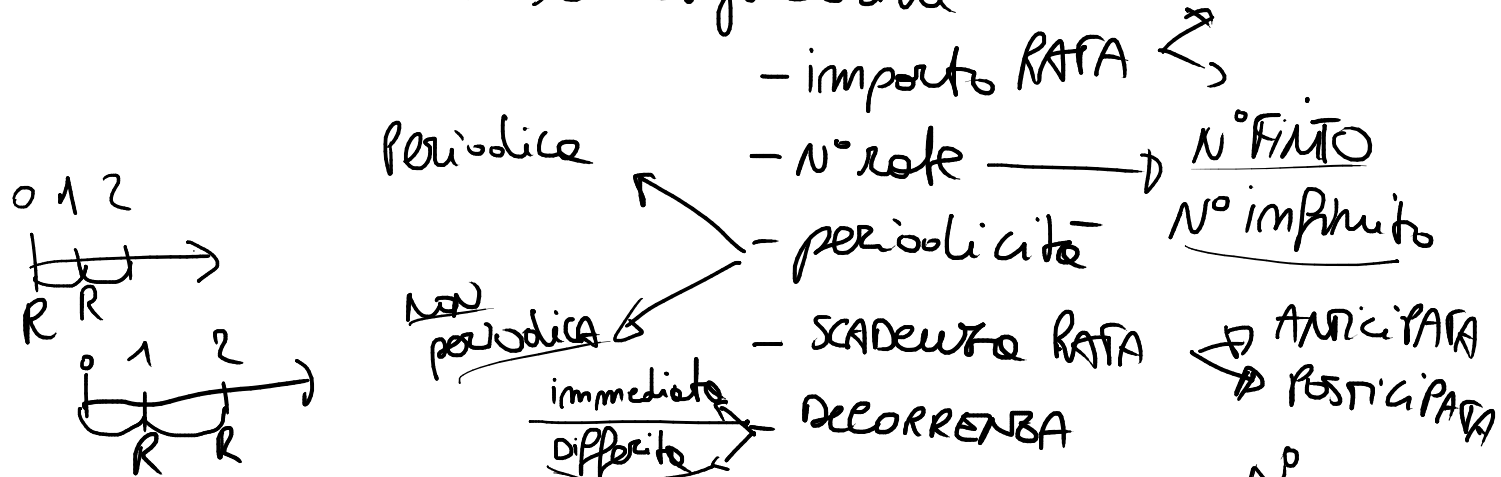 - importo RATA
Periodica
- N° rate
N° FINITO
N° infinito
- periodicità
0 1 2
R R
NON
periodica
- SCADENZA RATA
ANTICIPATA
POSTICIPATA
0 1 2
R R
immediata
Differita
- DECORRENZA
N°